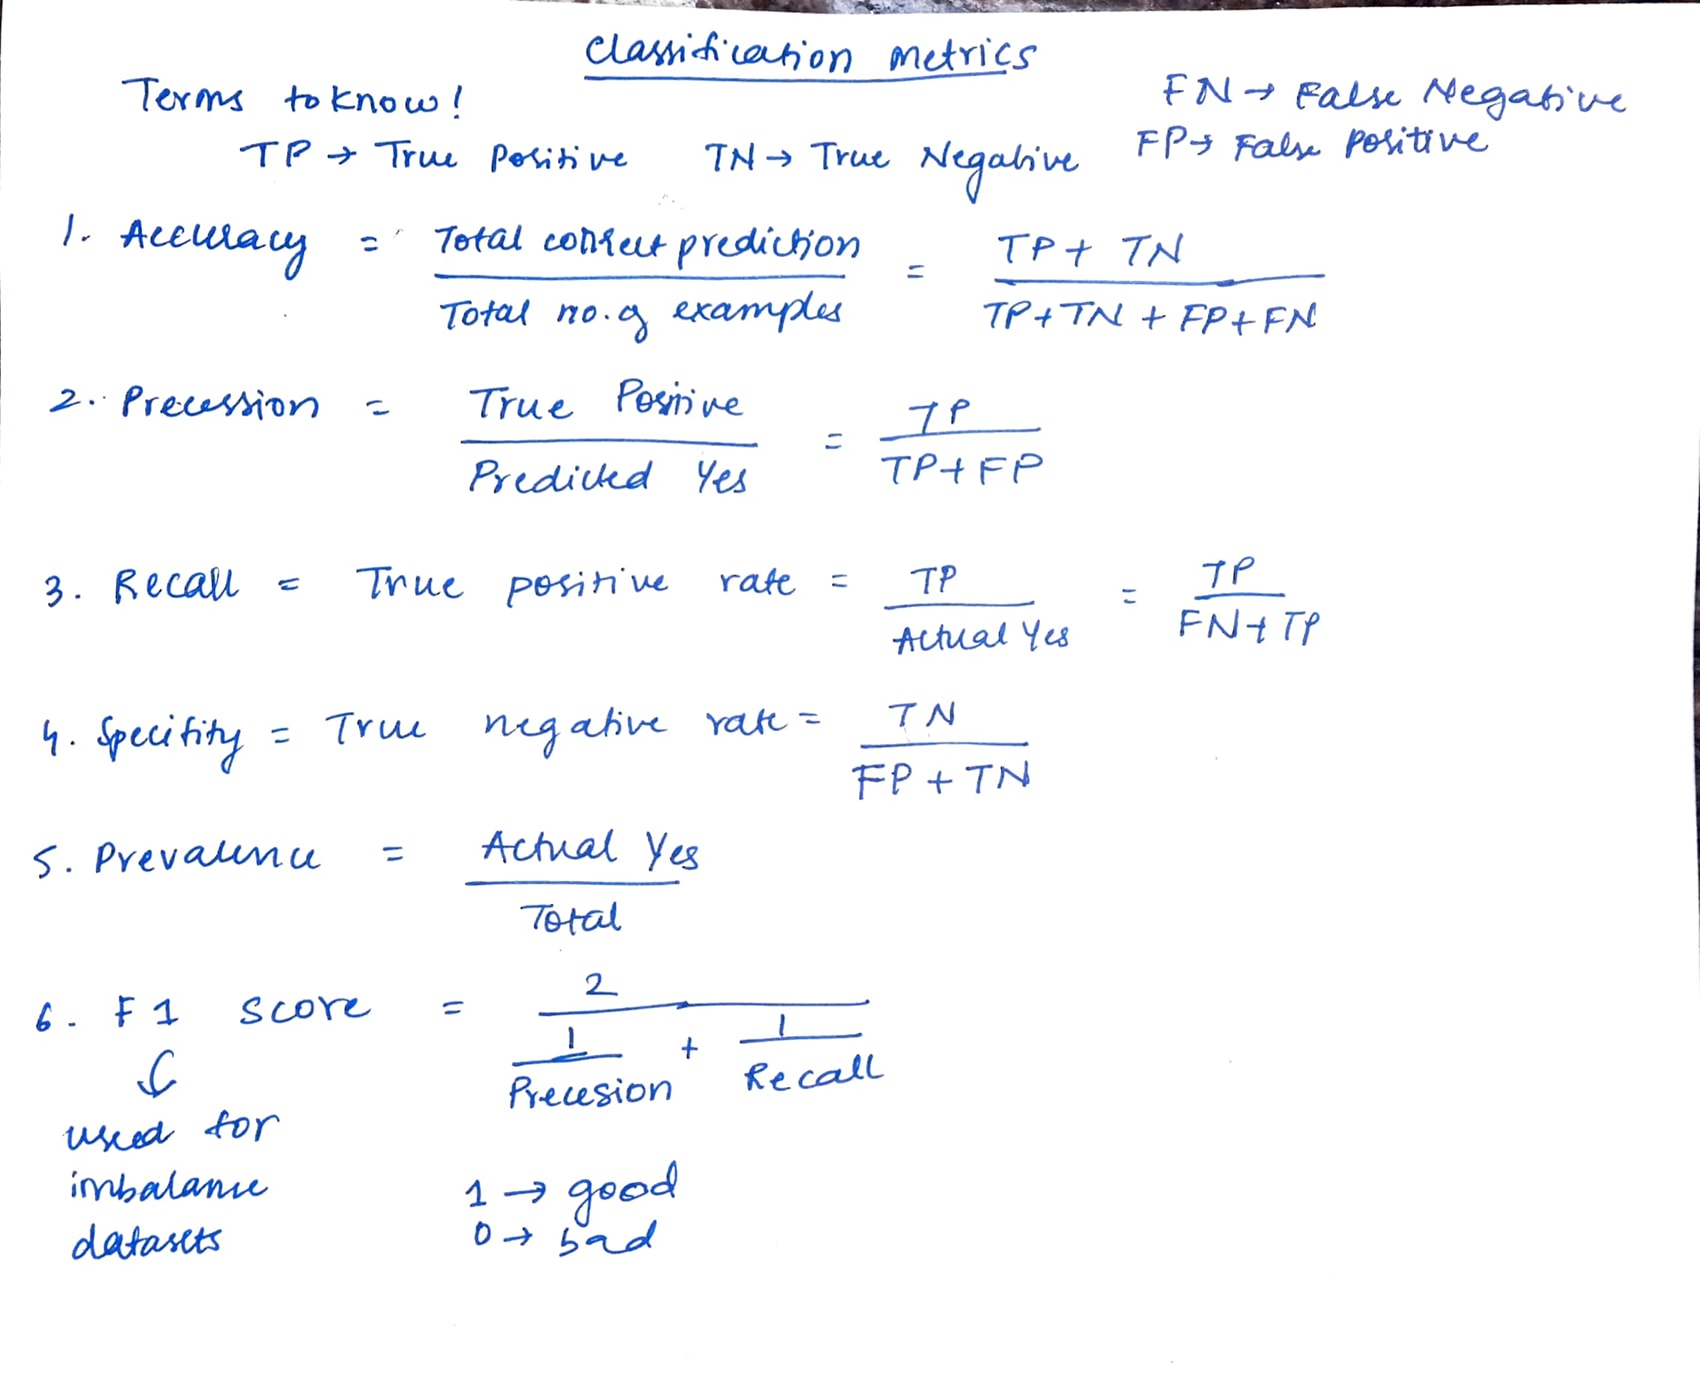 Classification metrics
Terms to know!
FN → False Negative
TP → True Positive TN → True Negative FP → False Positive
1. Accuracy = Total correct prediction / Total no. of examples = TP + TN / TP + TN + FP + FN
2. Precession = True Positive / Predicted Yes = TP / TP + FP
3. Recall = True positive rate = TP / Actual Yes = TP / FN + TP
4. Specifity = True negative rate = TN / FP + TN
5. Prevalence = Actual Yes / Total
6. F1 score = 2 / 1 / Precesion + 1 / Recall
↓
used for
imbalance
datasets
1 → good
0 → bad